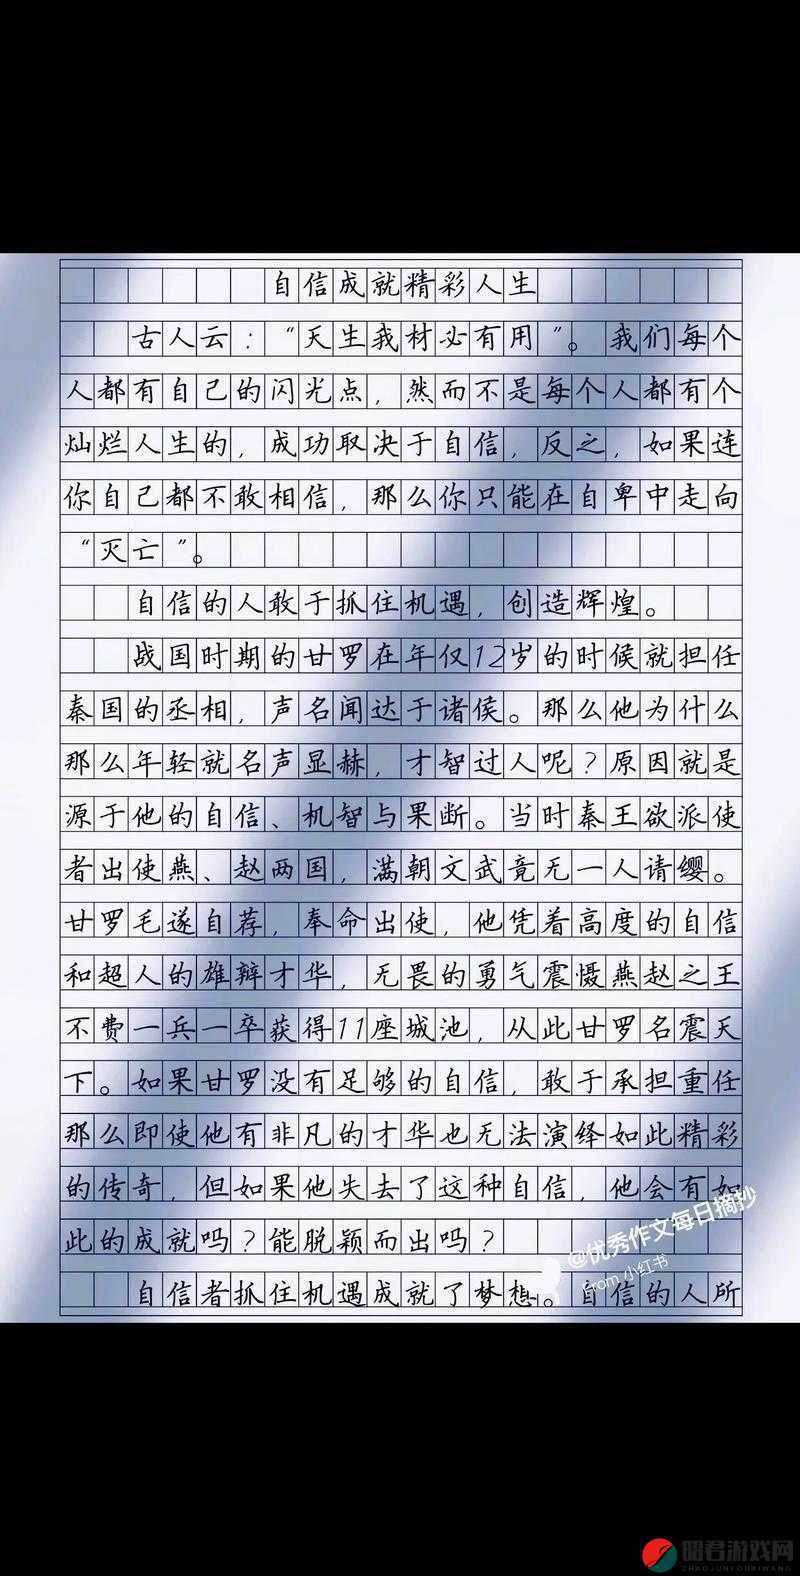 自信成就精彩人生
古人云：“天生我材必有用”。我们每个
人都有自己的闪光点，然而不是每个人都有个
灿烂人生的，成功取决于自信，反之，如果连
你自己都不敢相信，那么你只能在自卑中走向
“灭亡”。
自信的人敢于抓住机遇，创造辉煌。
战国时期的甘罗在年仅12岁的时候就担任
秦国的丞相，声名闻达于诸侯。那么他为什么
那么年轻就名声显赫，才智过人呢？原因就是
源于他的自信、机智与果断。当时秦王欲派使
者出使燕、赵两国，满朝文武竟无一人请缨。
甘罗毛遂自荐，奉命出使，他凭着高度的自信
和超人的雄辩才华，无畏的勇气震慑燕赵之王
不费一兵一卒获得11座城池，从此甘罗名震天
下。如果甘罗没有足够的自信，敢于承担重任
那么即使他有非凡的才华也无法演绎如此精彩
的传奇，但如果他失去了这种自信，他会有如
此的成就吗？能脱颖而出吗？
自信者抓住机遇成就了梦想。自信的人所
@优秀作文每日摘抄
From 小红书
昭君游戏网
ZHAOJUNYOUXIWANG